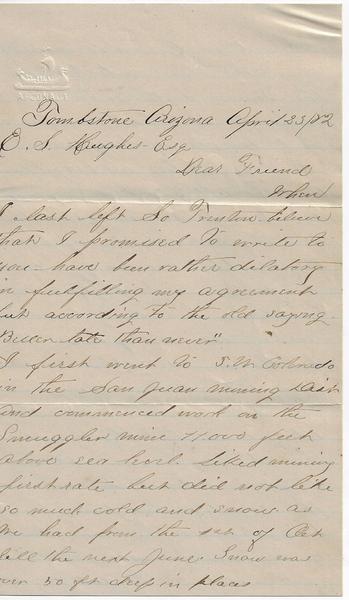 Tombstone Arizona April 23/82
E. S. Hughes Esq
Dear Friend
When
I last left So Trenton believe
that I promised to write to
you have been rather dilatory
in fulfilling my agreement
but according to the old saying
Better late than never"
I first went to S.W. Colorado
in the San Juan mining Dist
and commenced work on the
Smuggler mine 11.000 feet
above sea level. liked mining
first rate but did not like
so much cold and snow as
we had from the 1st of Oct
till the next June Snow was
over 50 ft deep in places